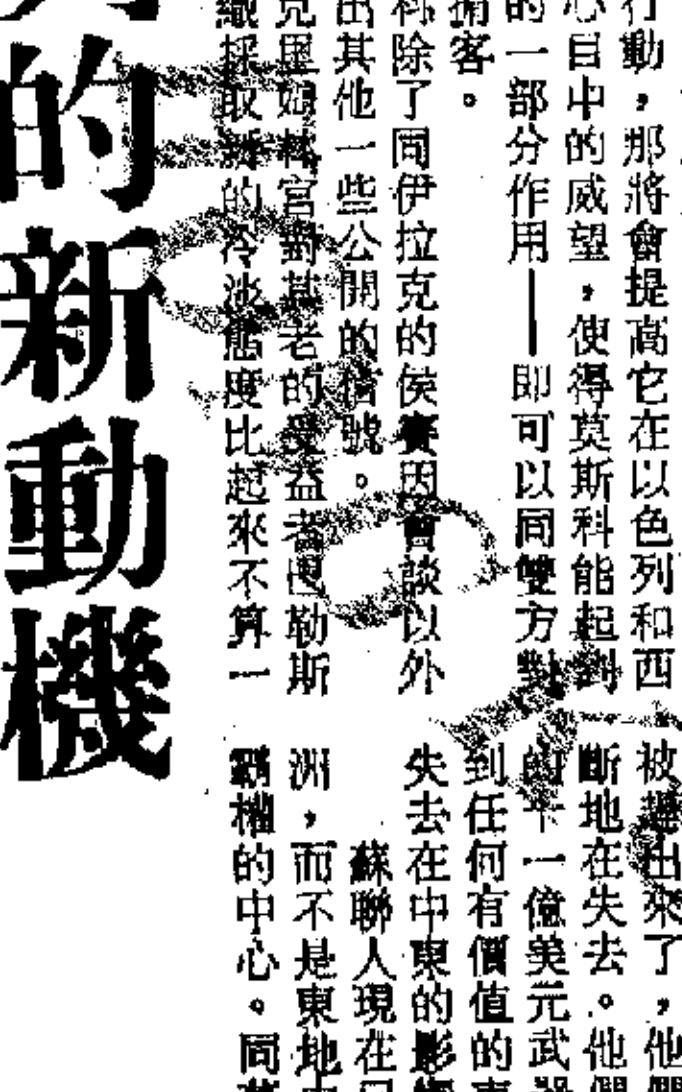 行動，那將會提高它在以色列和西
心目中的威望，使得莫斯科能起到
的一部分作用——即可以同雙方對
掮客。
科除了同伊拉克的侯賽因會談以外
出其他一些公開的信號。
克里姆林宮對其老的受益者巴勒斯
織採取新的冷淡態度比起來不算一
被趕出來了，他
斷地在失去。他
一億美元武
到任何有價值的
失去在中東的影
蘇聯人現在
洲，而不是東地
霸權的中心。同
的新動機